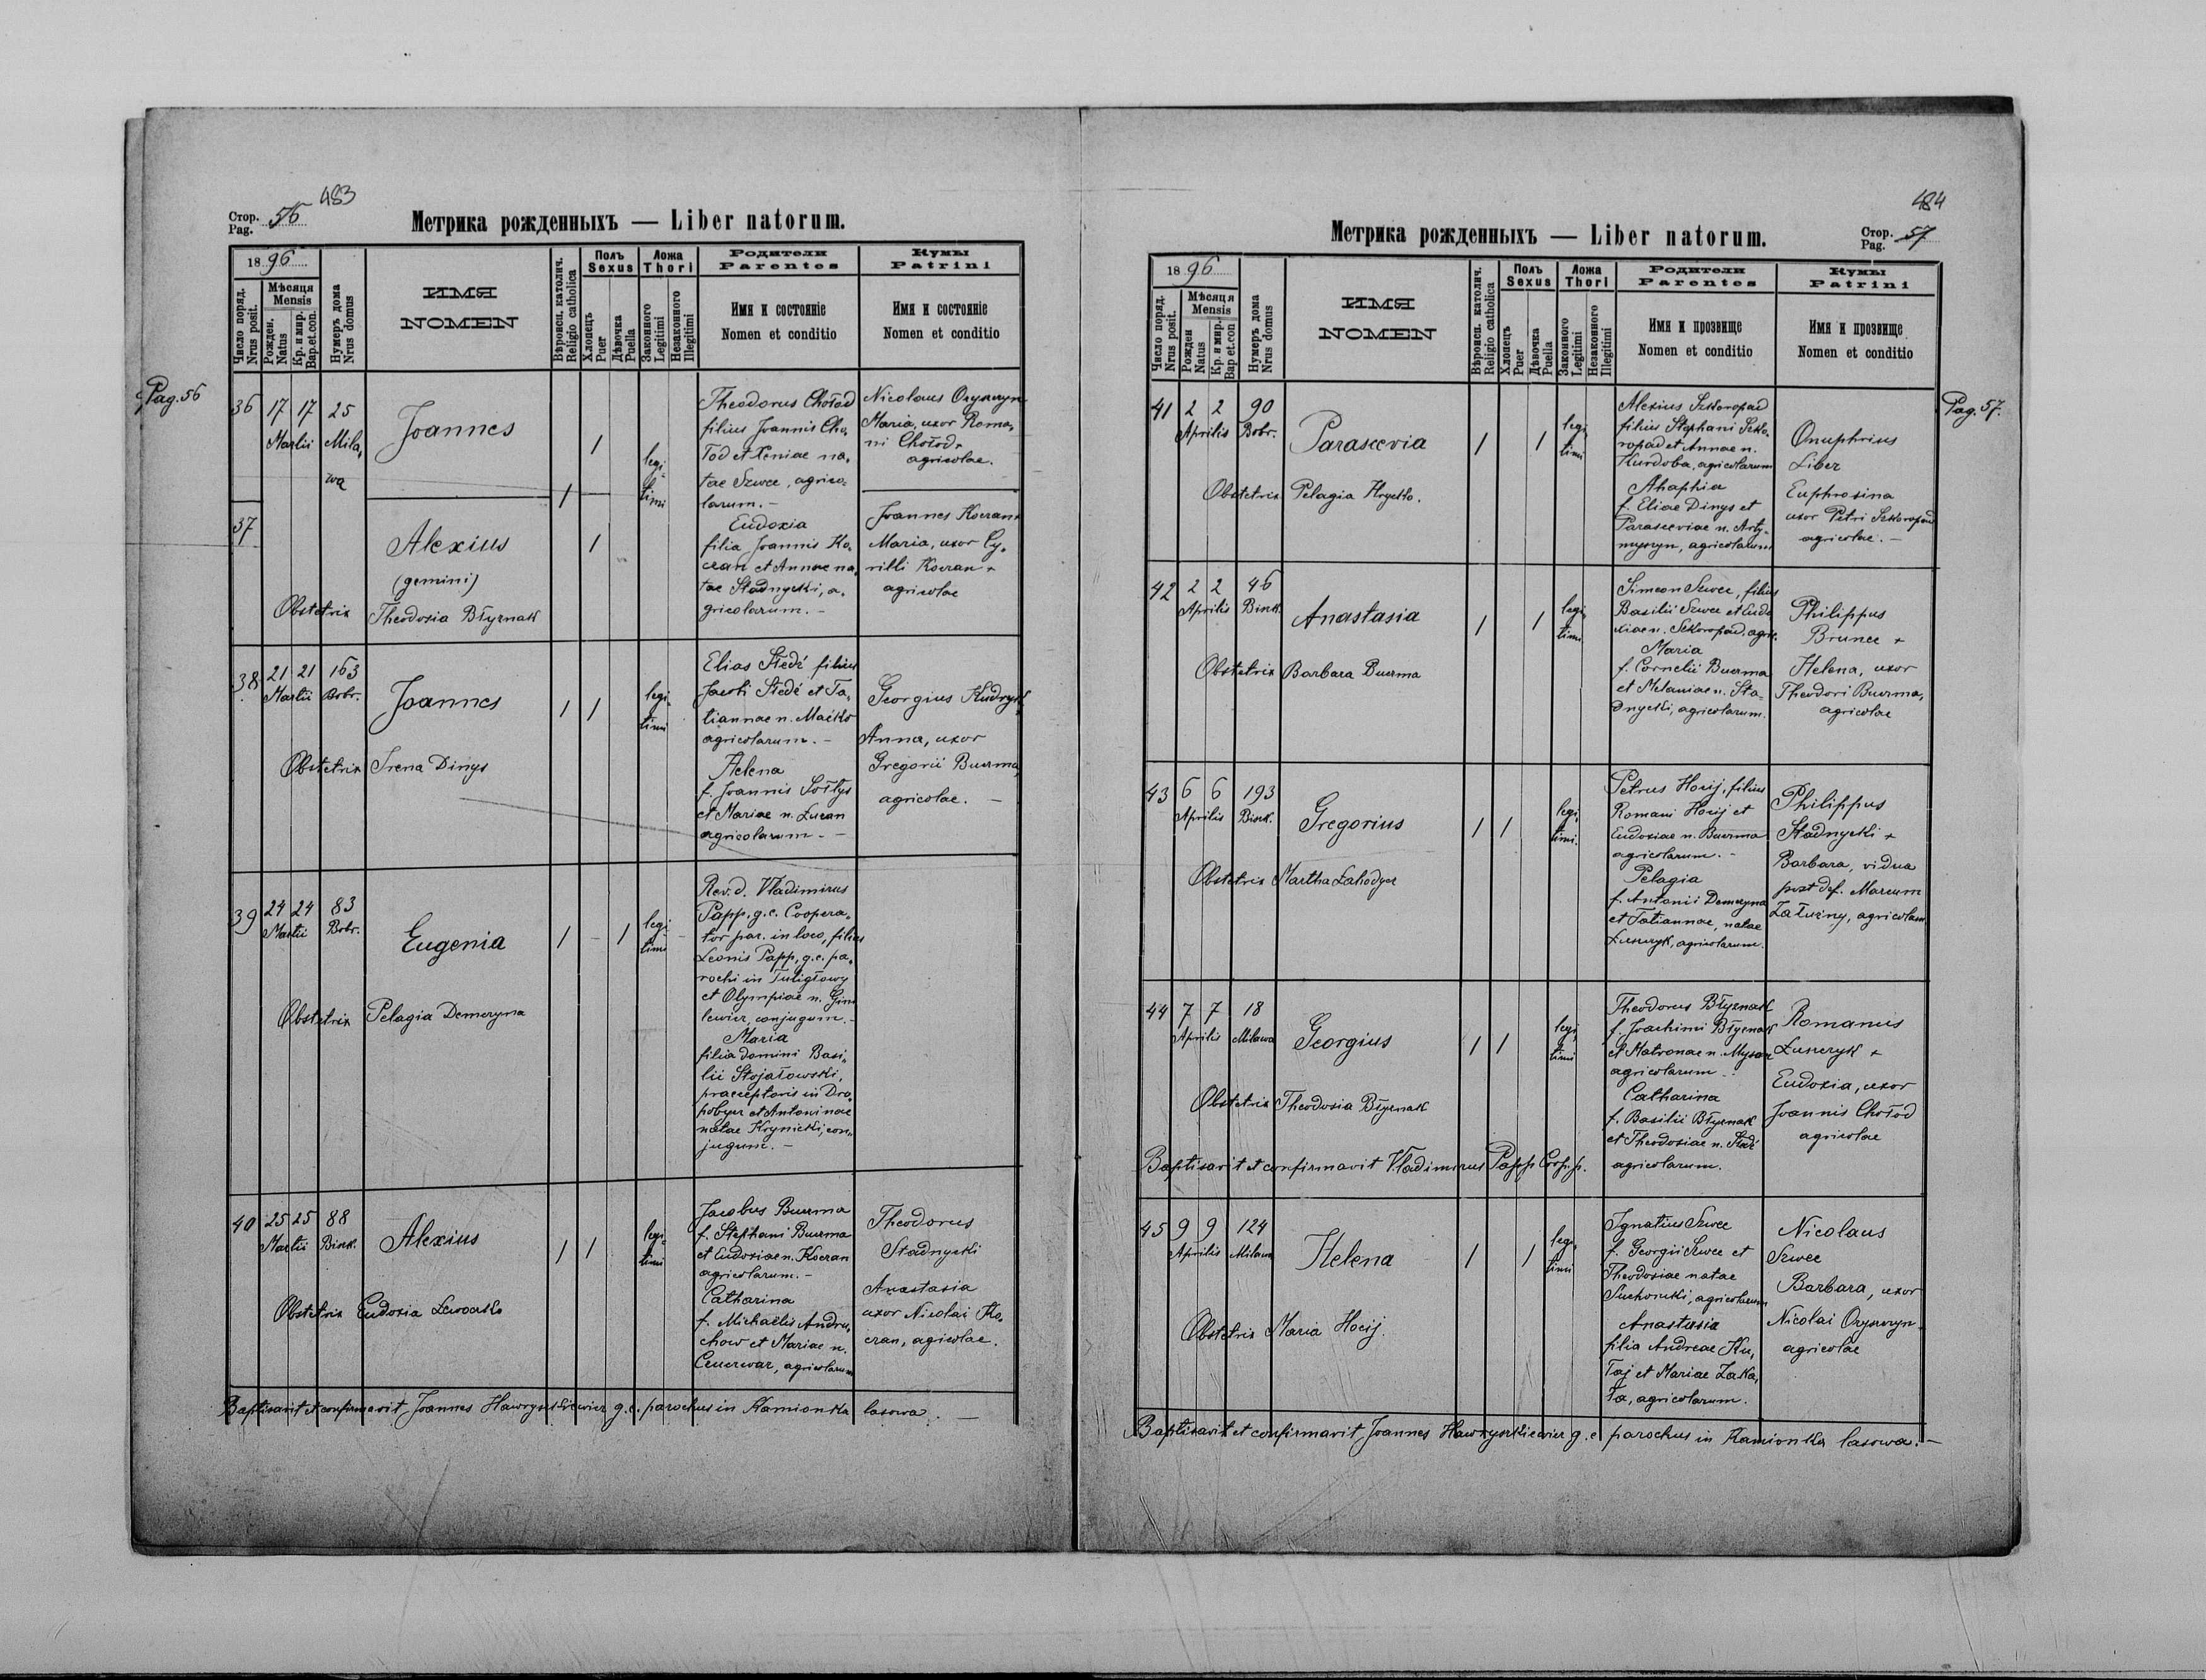 483
Стор. Pag. 56
Метрика рожденныхъ — Liber natorum.
1896
Число поряд. Nrus posit.
Мѣсяця Mensis
Рожден. Natus
Кр. и мир. Bap.et.con.
Нумеръ дома Nrus domus
ИМЯ
NOMEN
Вѣроисп. католич. Religio catholica
Полъ Sexus
Хлопецъ Puer
Дѣвочка Puella
Ложа Thori
Законного Legitimi
Незаконного Illegitimi
Родители
Parentes
Имя и состояніе
Nomen et conditio
Кумы
Patrini
Имя и состояніе
Nomen et conditio
Pag. 56
36 17 17 25
Martii Mila,
wa
Joannes
1
1
legi-
timi
Theodorus Chołod
filius Joannis Cho,
łod et Xeniae na,
tae Szwec, agrico,
larum. -
Nicolaus Oryszczyn
Maria, uxor Roma,
ni Chołod,
agricolae.
37
Alexius
(gemini)
1
Obstetrix Theodosia Błyznak
Eudoxia
filia Joannis Ko,
cran et Annae na,
tae Stadnycki, a,
gricolarum. -
Joannes Kocran +
Maria, uxor Cy,
rilli Kocran +
agricolae
38 21 21 163
Martii Bobr.
Joannes
1 1
legi-
timi
Obstetrix Irena Dinys
Elias Śledź filius
Jacobi Śledź et Ta,
tiannae n. Maćko
agricolarum. -
Helena
f. Joannis Sołtys
et Mariae n. Lucan
agricolarum. -
Georgius Kudryk
Anna, uxor
Gregorii Buczma,
agricolae. -
39 24 24 83
Martii Bobr.
Eugenia
1 - 1
legi-
timi
Obstetrix Pelagia Demczyna
Rev. d. Vladimirus
Papp, g. c. Coopera,
tor par. in loco, filius
Leonis Papp, g. c. pa,
rochi in Tuligłowy
et Olympiae n.
lewicz, conjugum. -
Maria
filia domini Basi,
lii Stojałowski,
praeceptoris in Dro,
hobycz et Antoninae
natae Krynicki, con,
jugum. -
40 25 25 88
Martii Bisk.
Alexius
1 1
legi-
timi
Obstetrix Eudoxia
Jacobus Buczma
f. Stephani Buczma
et Eudoxiae n. Kocran
agricolarum. -
Catharina
f. Michaëlis Andru,
chow et Mariae n.
agricolarum
Theodorus
Stadnycki
Anastasia
uxor Nicolai Ko,
cran, agricolae.
Baptisavit et confirmavit Joannes Hawryszkiewicz g. c. parochus in Kamionka lasowa. -
484
Метрика рожденныхъ — Liber natorum.
Стор. Pag. 57
1896
Число поряд. Nrus posit.
Мѣсяця Mensis
Рожден Natus
Кр. и мир. Bap et.con
Нумеръ дома Nrus domus
ИМЯ
NOMEN
Вѣроисп. католич. Religio catholica
Полъ Sexus
Хлопецъ Puer
Дѣвочка Puella
Ложа Thori
Законного Legitimi
Незаконного Illegitimi
Родители
Parentes
Имя и прозвище
Nomen et conditio
Кумы
Patrini
Имя и прозвище
Nomen et conditio
Pag. 57.
41 2 2 90
Aprilis Bobr.
Parascevia
1 1
legi,
timi
Obstetrix Pelagia Hrycko.
Alexius Szkoropad
filius Stephani Szko,
ropad et Annae n.
Kurdoba, agricolarum
Ahaphia
f. Eliae Dinys et
Parasceviae n. Arty-
myszyn, agricolarum
Onuphrius
Liber
Euphrosina
uxor Petri Szkoropad
agricolae. -
42 2 2 46
Aprilis Bisk.
Anastasia
1 1
legi,
timi
Obstetrix Barbara Buczma
Simeon Szwec, filius
Basilii Szwec et Eudo
xiae n. Szkoropad, agric.
Maria
f. Cornelii Buczma
et Melaniae n. Sta-
dnycki, agricolarum.
Philippus
Brunec +
Helena, uxor
Theodori Buczma,
agricolae
43 6 6 193
Aprilis Bisk.
Gregorius
1 1
legi,
timi.
Obstetrix Martha Lahodycz
Petrus Hocij, filius
Romani Hocij et
Eudoxiae n. Buczma
agricolarum. -
Pelagia
f. Antonii Demczyna
et Tatiannae, natae
Łuszczyk, agricolarum.
Philippus
Stadnycki +
Barbara, vidua
post def. Marcum
Załużny, agricolam
44 7 7 18
Aprilis Milawa
Georgius
1 1
legi,
timi
Obstetrix Theodosia Błyznak
Theodorus Błyznak
f. Joachimi Błyznak
et Matronae n. Mysak
agricolarum.
Catharina
f. Basilii Błyznak
et Theodosiae n. Śledź
agricolarum.
Romanus
Łuszczyk +
Eudoxia, uxor
Joannis Chołod
agricolae
Baptisavit et confirmavit Vladimirus Papp Coop. p.
45 9 9 124
Aprilis Milawa
Helena
1 1
legi,
timi
Obstetrix Maria Hocij.
Ignatius Szwec
f. Georgii Szwec et
Theodosiae natae
Suchoniki, agricolarum
Anastasia
filia Andreae Ku,
łaj et Mariae Zaka,
ła, agricolarum.
Nicolaus
Szwec
Barbara, uxor
Nicolai Oryszczyn
agricolae
Baptisavit et confirmavit Joannes Hawryszkiewicz g. c parochus in Kamionka lasowa. -